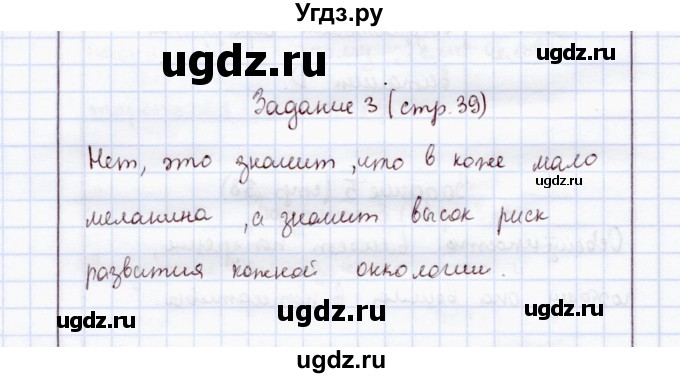 Угдз.ру
ugdz.ru
ugdz.ru
Задание 3 (стр. 39)
Нет, это значит, что в коже мало
ugdz.ru
меланина, а значит высок риск
развития кожной онкологии.
ugdz.ru
ugdz.ru
ugdz.ru
ugdz.ru